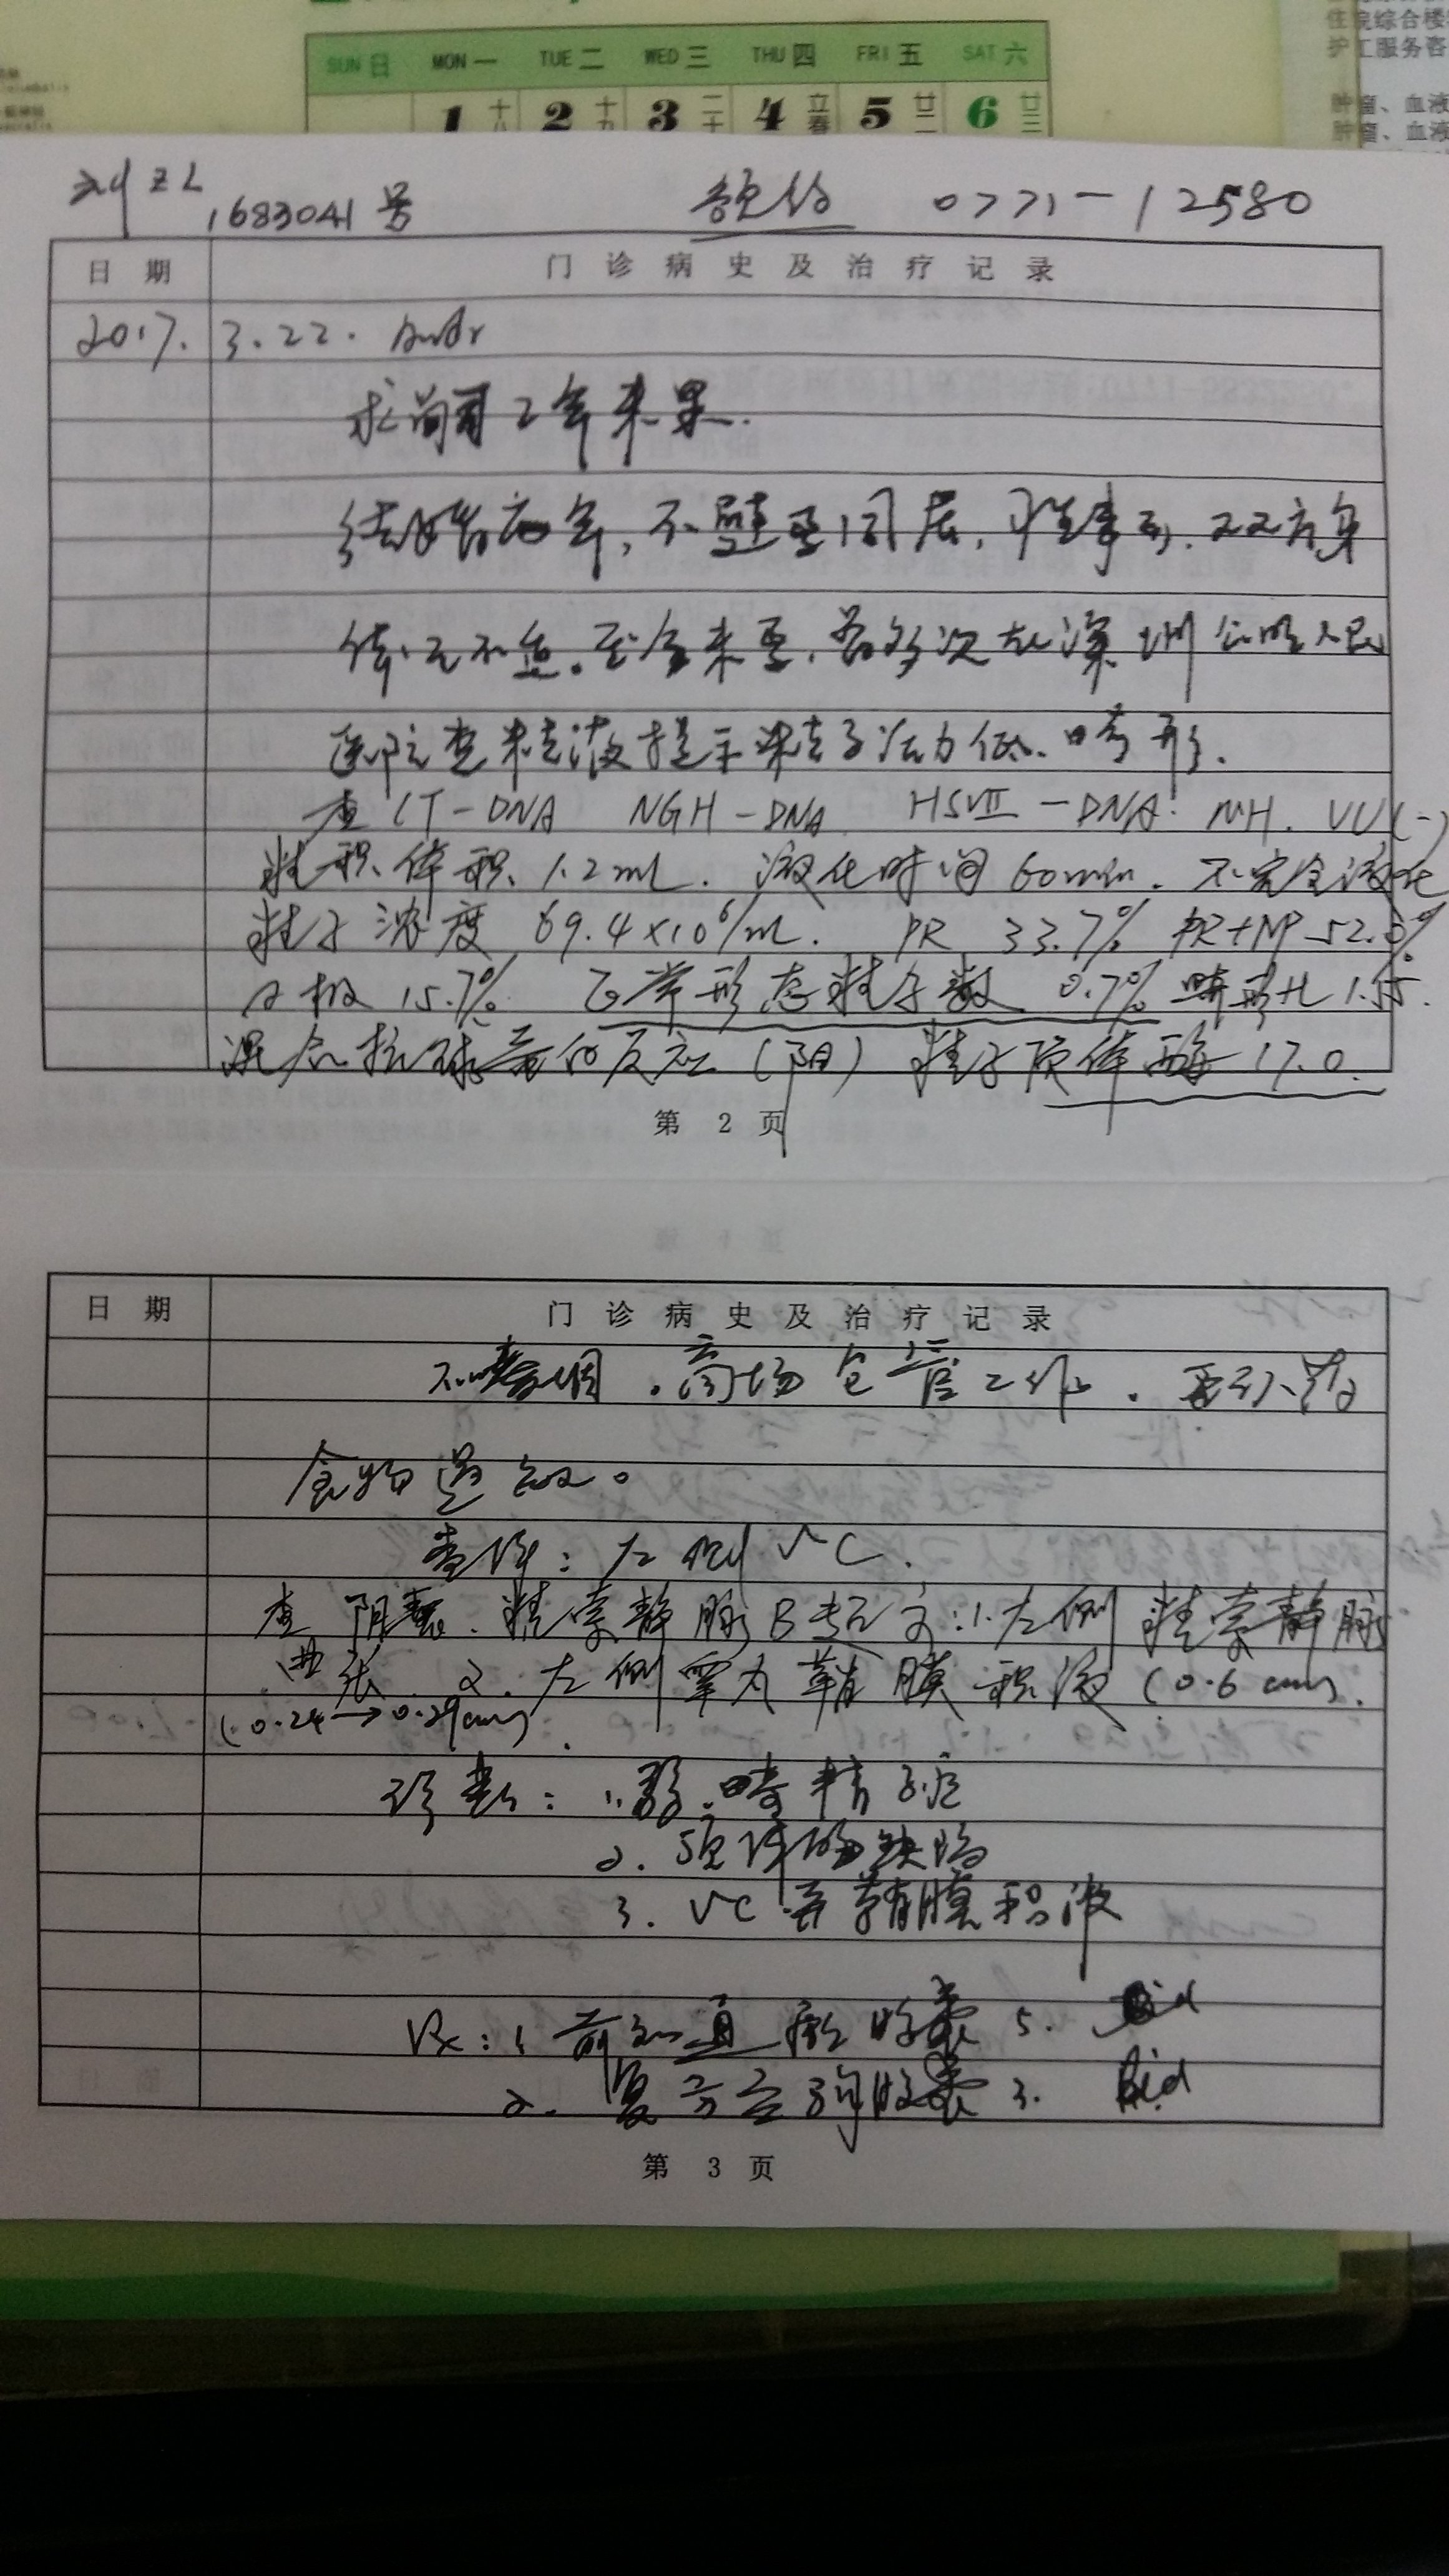 SUN 日 MON 一 TUE 二 WED 三 THU 四 FRI 五 SAT 六
1 十八 2 十九 3 二十 4 立春 5 廿二 6 廿三
住院综合楼
护工服务咨
肿瘤、血液
肿瘤、血液
刘
1683041号 预约 0771-12580
日 期 门 诊 病 史 及 治 疗 记 录
2017. 3.22.
求嗣2年未果.
结婚 年,不 同居,性事可.双方身
体 至今未孕,曾多次在深圳公明人民
医院查精液提示精子活力低、畸形.
查 CT-DNA NGH-DNA HSVII-DNA. MH. UU(-)
精液体积 1.2mL. 液化时间 60min. 不完全液化
精子浓度 69.4×10⁶/mL. PR 33.7% PR+NP 52.0%
a级 15.7% 正常形态精子数 0.7% 畸形 1.55.
混合抗球蛋白反应(阴) 精子顶体酶 17.0.
第 2 页
日 期 门 诊 病 史 及 治 疗 记 录
不嗜烟.商场仓管工作.
食物过敏。
查体:左侧VC.
查 阴囊.精索静脉B超示:1.左侧精索静脉
曲张. 2.左侧睾丸鞘膜积液(0.6cm).
(0.24→0.29cm).
诊断:1.弱.畸精子症
2.顶体酶缺陷
3. VC并鞘膜积液
Rx:1. 前列通瘀胶囊 5. Bid
2. 复方玄驹胶囊 3. Bid
第 3 页